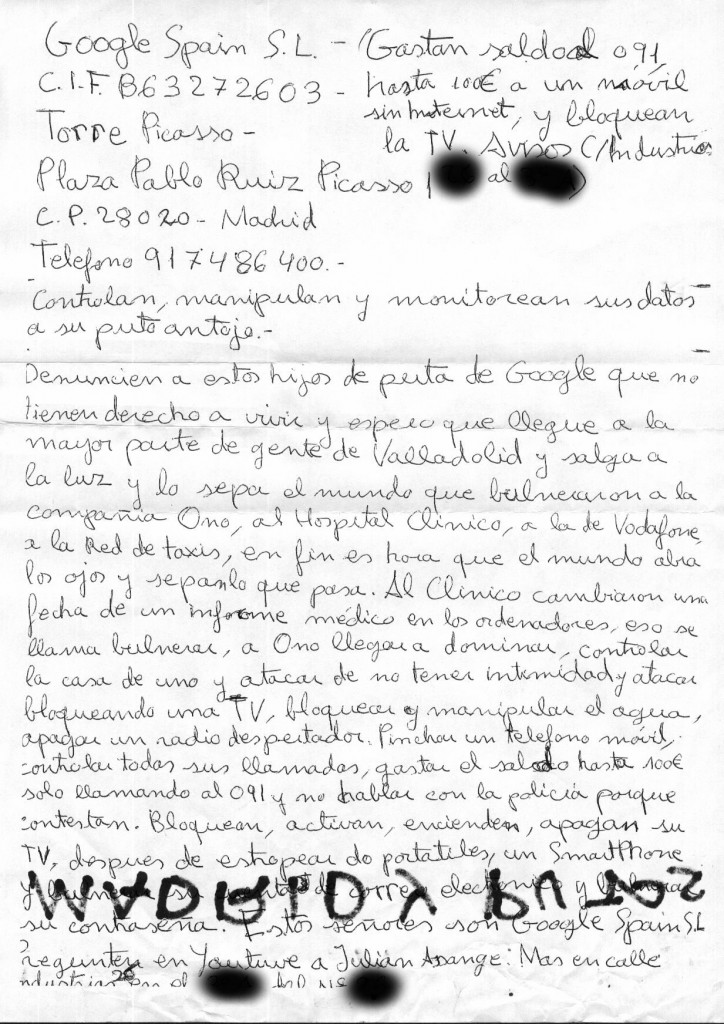 Google Spain S.L. - (Gastan saldo al 091,
C.I.F. B63272603 - hasta 100€ a un móvil
sin Internet, y bloquean
Torre Picasso - la TV. Avisos C/Industrias
Plaza Pablo Ruiz Picasso ( al )
C.P. 28020 - Madrid
Telefono 917486400.-
Controlan, manipulan y monitorean sus datos
a su puto antojo.-
Denuncien a estos hijos de puta de Google que no
tienen derecho a vivir y espero que llegue a la
mayor parte de gente de Valladolid y salga a
la luz y lo sepa el mundo que bulneraron a la
compañia Ono, al Hospital Clinico, a la de Vodafone,
a la Red de taxis, en fin es hora que el mundo abra
los ojos y sepanlo que pasa. Al Clinico cambiaron una
fecha de un informe médico en los ordenadores, eso se
llama bulnerar, a Ono llegar a dominar, controlar
la casa de uno y atacar de no tener intimidad y atacar
bloqueando una TV, bloquear y manipular el agua,
apagar un radio despertador. Pinchar un telefono móvil,
controlar todas sus llamadas, gastar el saldo hasta 100€
solo llamando al 091 y no hablar con la policia porque
contestan. Bloquean, activan, encienden, apagan su
TV, despues de estropear do portatiles, un SmartPhone
y su correo electronico y
su contraseña. Estos señores son Google Spain S.L
Pregunten en Youtuve a Julian Asange: Mas en calle
Industrias en el